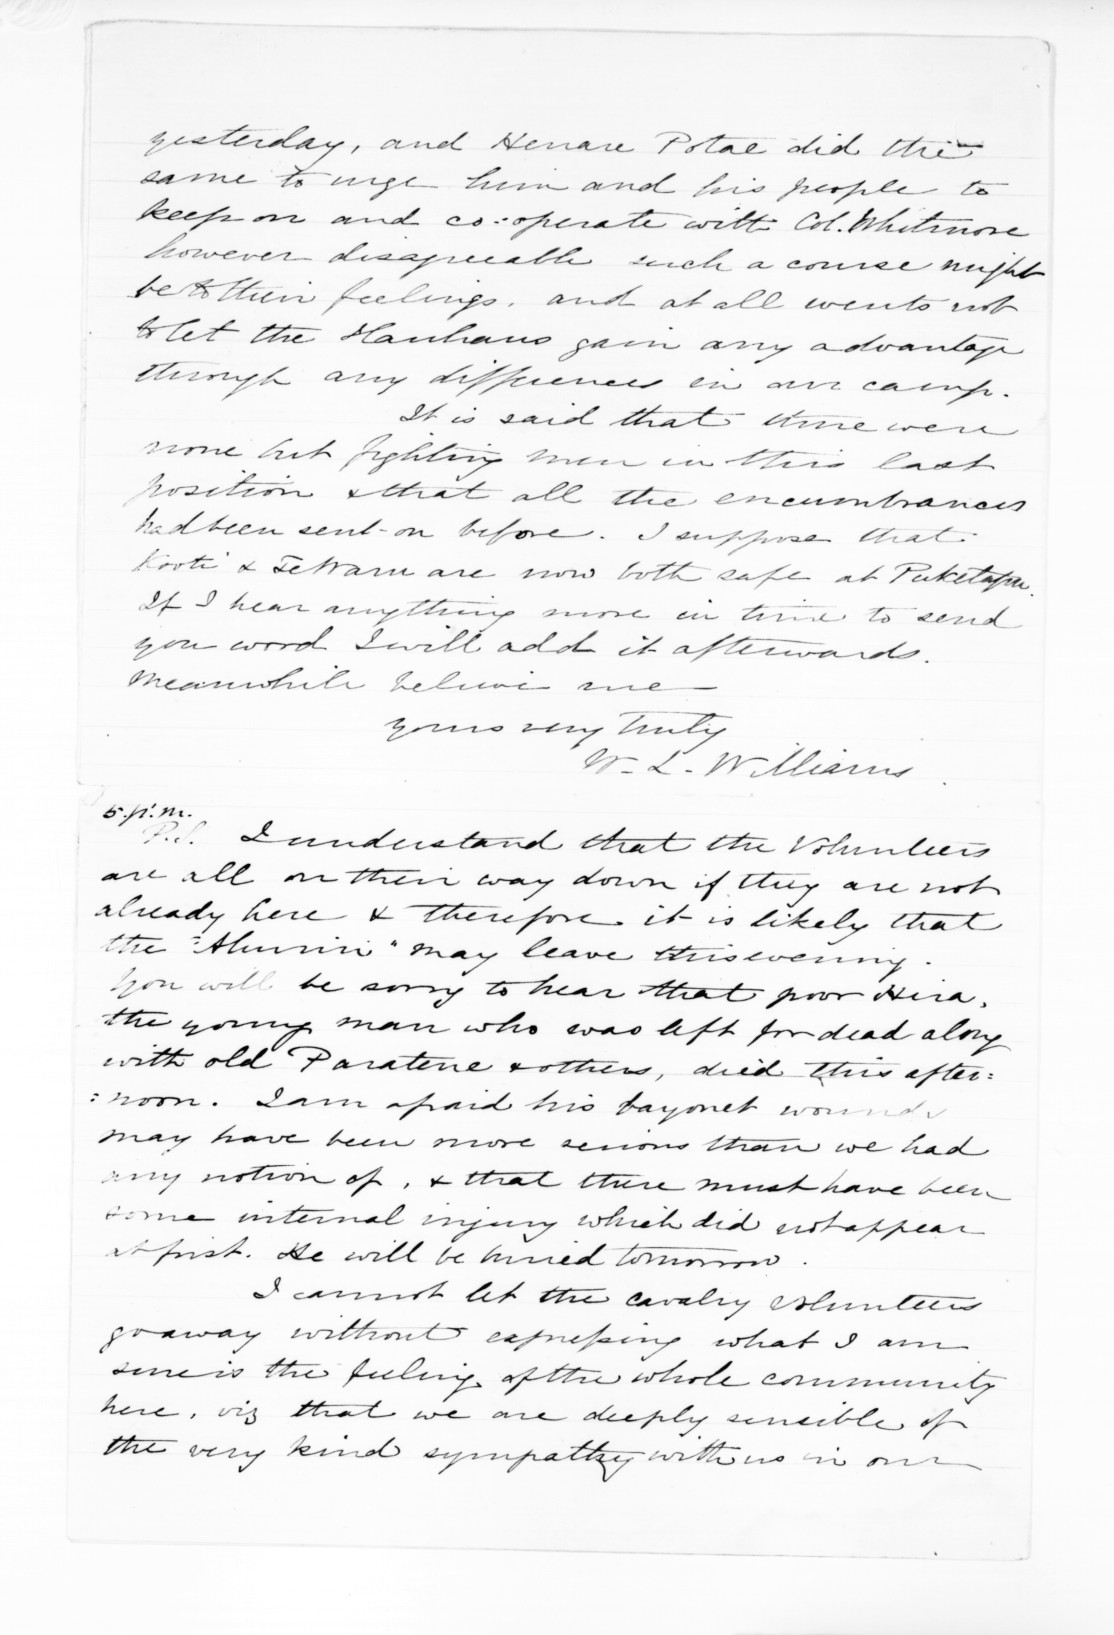 yesterday, and Henare Potae did the
same to urge him and his people to
keep on and co-operate with Col. Whitmore
however disagreeable such a course might
be to their feelings, and at all events not
to let the Hauhaus gain any advantage
through any differences in our camp.
It is said that there were
none but fighting men in this last
position & that all the encumbrances
had been sent on before. I suppose that
Kooti & Te Waru are now both safe at Puketapu.
If I hear anything more in time to send
you word I will add it afterwards.
Meanwhile believe me
yours very truly
W. L. Williams.
5. p.m.
P.S. I understand that the Volunteers
are all on their way down if they are not
already here & therefore it is likely that
the "Ahuriri" may leave this evening.
You will be sorry to hear that poor Hira,
the young man who was left for dead along
with old Paratene & others, died this after=
=noon. I am afraid his bayonet wounds
may have been more serious than we had
any notion of, & that there must have been
some internal injury which did not appear
at first. He will be buried tomorrow.
I cannot let the cavalry volunteers
go away without expressing what I am
sure is the feeling of the whole community
here, viz that we are deeply sensible of
the very kind sympathy with us in our